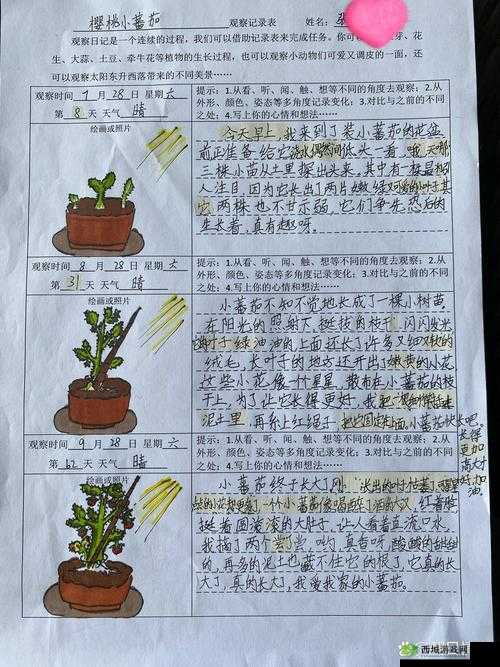 樱桃小蕃茄 观察记录表 姓名:
观察日记是一个连续的过程,我们可以借助记录表来完成任务。你可以 芽、花
生、大蒜、土豆、牵牛花等植物的生长过程,也可以观察小动物们可爱又调皮的一面,还
可以观察太阳东升西落带来的不同美景……
观察时间 7 月 28 日 星期 六
第 8 天 天气 晴
绘画或照片
提示:1.从看、听、闻、触、想等不同的角度去观察;2.从
外形、颜色、姿态等多角度记录变化;3.对比与之前的不同
之处;4.写上你的心情和想法……
今天早上,我来到了装小蕃茄的花盆
前正准备给它浇水偶然间低头一看,哦,天哪
三棵小苗从土里探出头来。其中有一棵最引
人注目,因为它长出了两片嫩绿 的叶子其
它两株也不甘示弱,它们争先恐后的
生长着,真有趣呀。
观察时间 8 月 28 日 星期 六
第 31 天 天气 晴
绘画或照片
提示:1.从看、听、闻、触、想等不同的角度去观察;2.从
外形、颜色、姿态等多角度记录变化;3.对比与之前的不同
之处;4.写上你的心情和想法……
小蕃茄不知不觉地长成了一棵小树苗
在阳光的照射下,挺枝肉枝干,闪闪发光
叶子绿油油的上面还长了许多又细又软的
绒毛,长叶子的地方还开出了嫩黄的小花
这些小花像一个星星,散布在小蕃茄的枝
干上,为了让它长得更好,我把 插进
泥土里,再系上红绳子,把它固定 面,小蕃茄快长吧,
去得更加高大才好加油
观察时间 9 月 28 日 星期 六
第 62 天 天气 晴
绘画或照片
提示:1.从看、听、闻、触、想等不同的角度去观察;2.从
外形、颜色、姿态等多角度记录变化;3.对比与之前的不同
之处;4.写上你的心情和想法……
小蕃茄终于长大了刚
的小花 一个小蕃茄像喝醉了酒的汉,红着脸
挺着圆滚滚的大肚子,让人看着直流口水,
我摘了两个尝尝,哟,真香呀酸酸的甜甜
的,再多的泥土也藏不住它的根了,它真的长
大了,真的长大了,我爱我家的小蕃茄。
西城游戏网